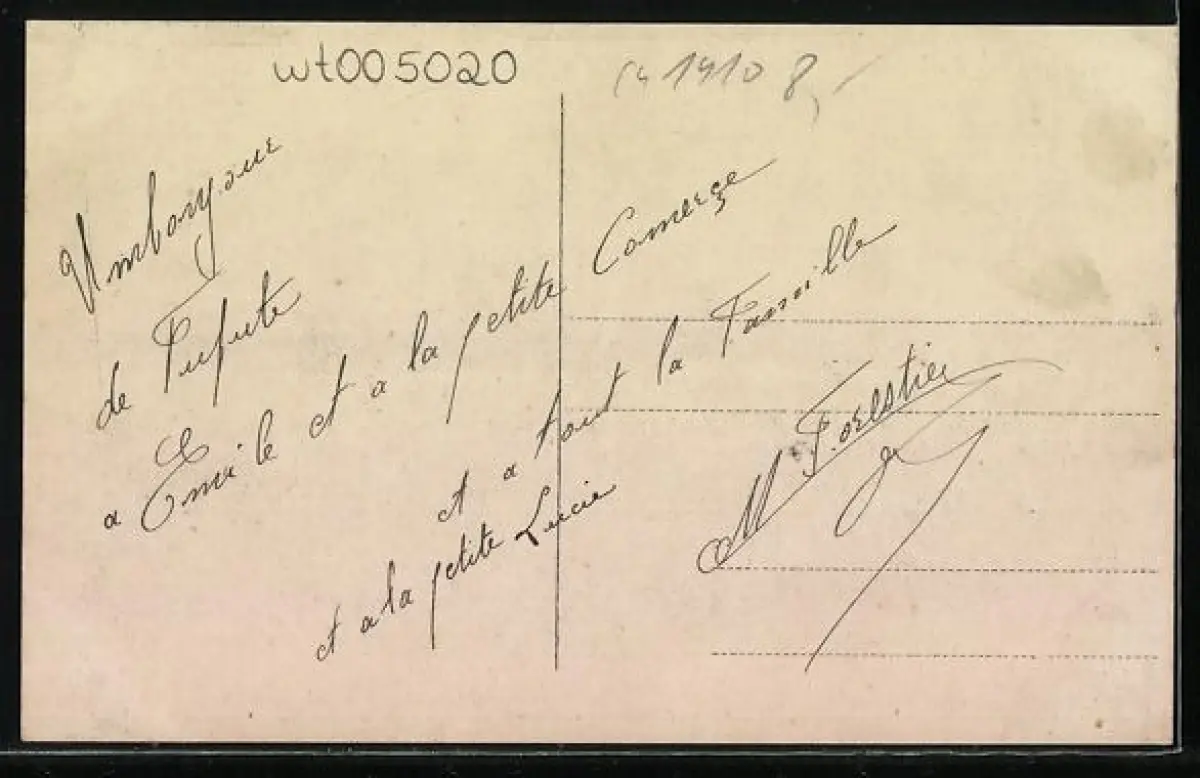 wt005020
ca 1910 8,-
Unbonjour
de Fifute
a Emile et a la petite Comerçe
et a tout la Famille
et a la petite Lucie
M Forestier